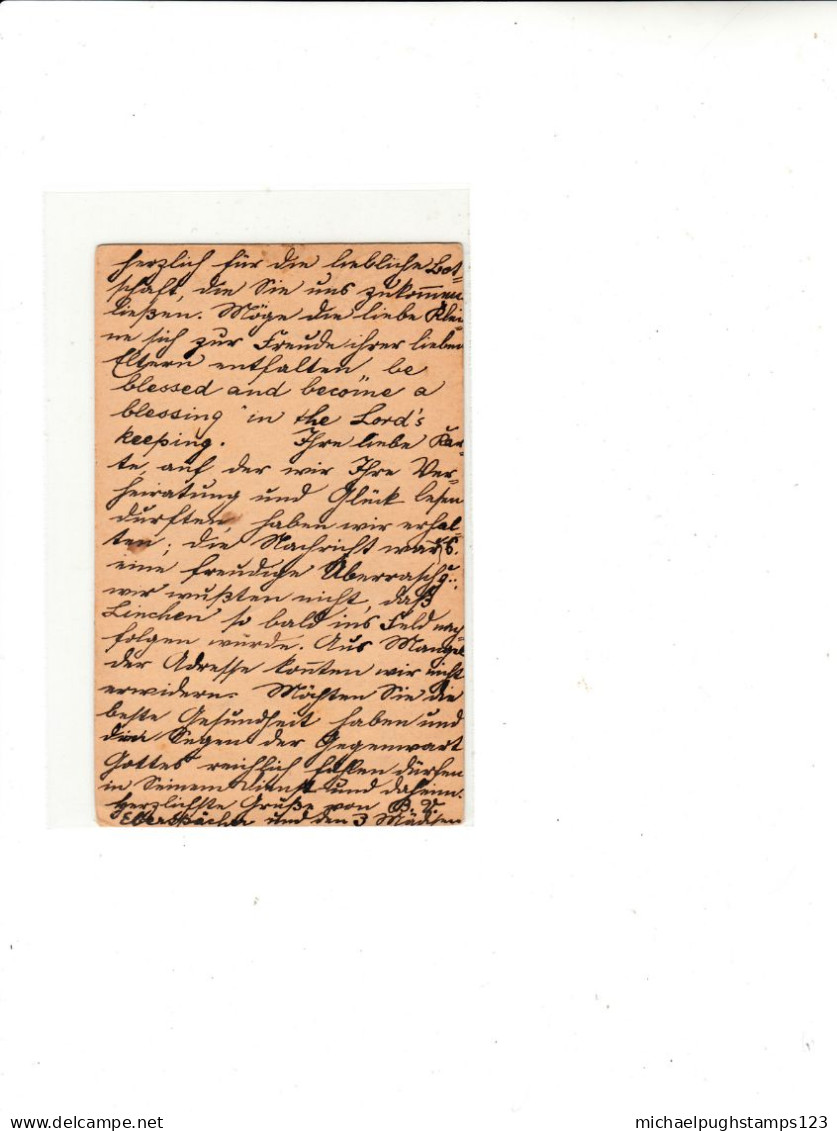 herzlich für die liebliche Bot-
schaft, die Sie uns zukommen
ließen. Möge die liebe Klei-
ne sich zur Freude ihrer lieben
Eltern entfalten be
blessed and become a
blessing in the Lord's
keeping. Ihre liebe Kar-
te, auf der wir Ihre Ver-
heiratung und Glück lesen
durften, haben wir erhal-
ten; die Nachricht war
eine freudige Überraschg.;
wir wußten nicht, daß
Linchen so bald ins Feld nach-
folgen würde. Aus Mangel
der Adresse konnten wir nicht
erwidern. Möchten Sie die
beste Gesundheit haben und
den Segen der Gegenwart
Gottes reichlich haben dürfen
in Seinem Dienst und daheim.
Herzlichste Grüße von
Eberspächer und den 3 Mädchen
michaelpughstamps123